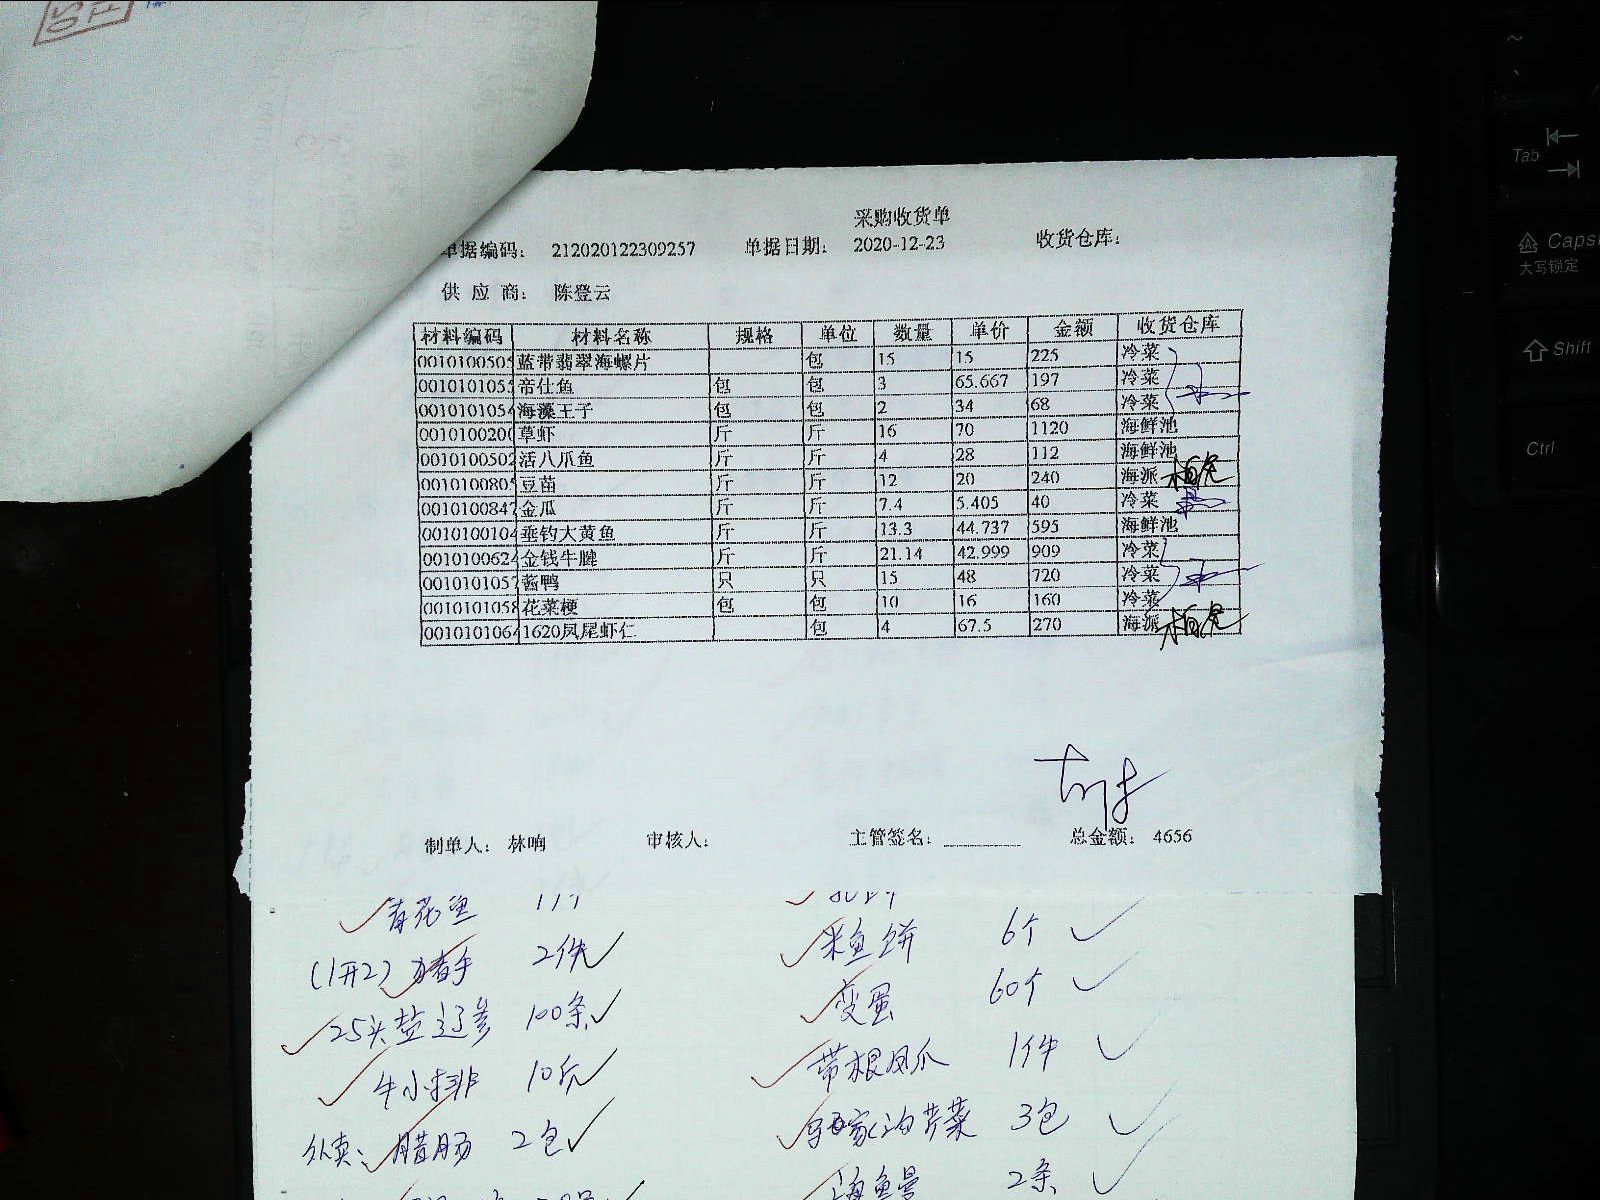 采购收货单
单据编码： 212020122309257 单据日期： 2020-12-23 收货仓库：
供 应 商： 陈登云
材料编码 材料名称 规格 单位 数量 单价 金额 收货仓库
0010100505 蓝带翡翠海螺片 包 15 15 225 冷菜
0010101055 帝仕鱼 包 包 3 65.667 197 冷菜
0010101054 海藻王子 包 包 2 34 68 冷菜
0010100200 草虾 斤 斤 16 70 1120 海鲜池
0010100502 活八爪鱼 斤 斤 4 28 112 海鲜池
0010100805 豆苗 斤 斤 12 20 240 海派
0010100847 金瓜 斤 斤 7.4 5.405 40 冷菜
0010100104 垂钓大黄鱼 斤 斤 13.3 44.737 595 海鲜池
0010100624 金钱牛腱 斤 斤 21.14 42.999 909 冷菜
0010101057 酱鸭 只 只 15 48 720 冷菜
0010101058 花菜梗 包 包 10 16 160 冷菜
0010101064 1620凤尾虾仁 包 4 67.5 270 海派
制单人： 林响 审核人： 主管签名： 总金额： 4656
青花鱼
米鱼饼 6个
(1开2) 猪手 2件
变蛋 60个
25头盐辽参 100条
带根凤爪 1件
牛小排 10斤
芹菜 3包
外卖： 腊肠 2包
海鳗 2条
Tab
Caps
大写锁定
Shift
Ctrl